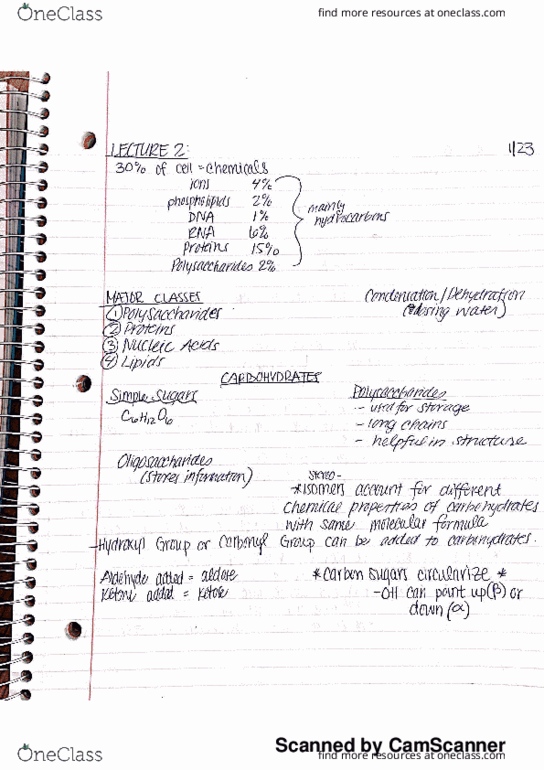 OneClass
find more resources at oneclass.com
LECTURE 2:
1/23
30% of cell = chemicals
ions 4%
phospholipids 2%
DNA 1%
RNA 6%
Proteins 15%
Polysaccharides 2%
mainly
hydrocarbons
MAJOR CLASSES
① Polysaccharides
② Proteins
③ Nucleic Acids
④ Lipids
Condensation/Dehydration
(losing water)
CARBOHYDRATES
Simple Sugars
C6H12O6
Polysaccharides
- used for storage
- long chains
- helpful in structure
Oligosaccharides
(stores information)
stereo-
*isomers account for different
chemical properties of carbohydrates
with same molecular formula
-Hydroxyl Group or Carbonyl Group can be added to carbohydrates.
Aldehyde added = aldose
Ketone added = ketose
*carbon sugars circularize *
-OH can point up(β) or
down(α)
Scanned by CamScanner
OneClass
find more resources at oneclass.com